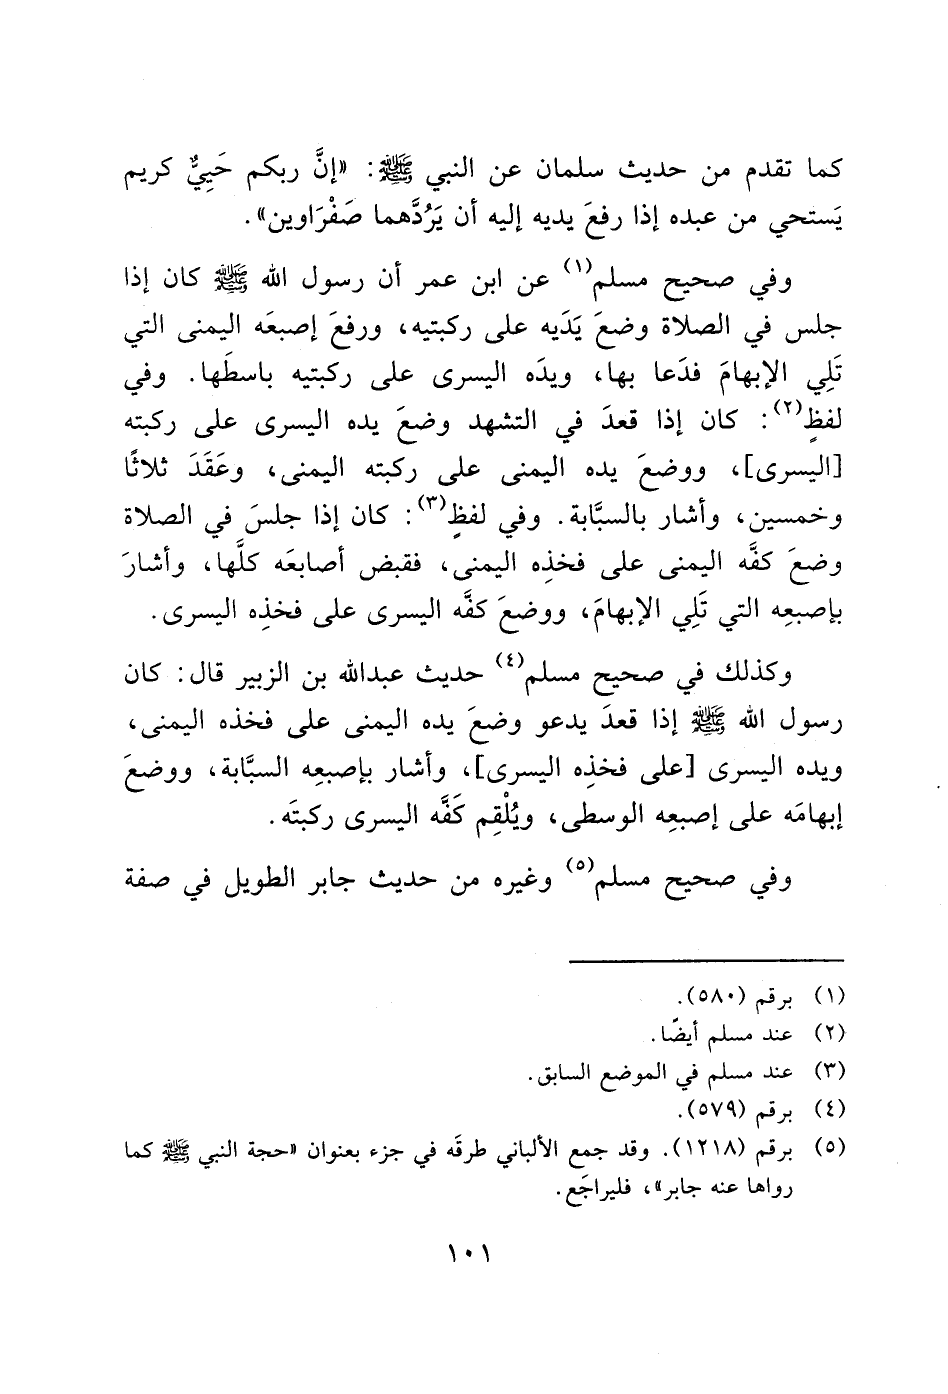 كما تقدم من حديث سلمان عن النبي ﷺ: «إنَّ ربكم حَيِيٌّ كريم
يَستحي من عبده إذا رفعَ يديه إليه أن يَرُدَّهما صَفْرَاوين».
وفي صحيح مسلم(١) عن ابن عمر أن رسول الله ﷺ كان إذا
جلس في الصلاة وضعَ يَدَيه على ركبتيه، ورفعَ إصبعَه اليمنى التي
تَلِي الإبهامَ فدَعا بها، ويدَه اليسرى على ركبتيه باسطَها. وفي
لفظٍ(٢): كان إذا قعدَ في التشهد وضعَ يده اليسرى على ركبته
[اليسرى]، ووضعَ يده اليمنى على ركبته اليمنى، وعَقَدَ ثلاثًا
وخمسين، وأشار بالسبَّابة. وفي لفظٍ(٣): كان إذا جلسَ في الصلاة
وضعَ كفَّه اليمنى على فخذِه اليمنى، فقبض أصابعَه كلَّها، وأشارَ
بإصبعِه التي تَلِي الإبهامَ، ووضعَ كفَّه اليسرى على فخذِه اليسرى.
وكذلك في صحيح مسلم(٤) حديث عبدالله بن الزبير قال: كان
رسول الله ﷺ إذا قعدَ يدعو وضعَ يده اليمنى على فخذه اليمنى،
ويده اليسرى [على فخذِه اليسرى]، وأشار بإصبعِه السبَّابة، ووضعَ
إبهامَه على إصبعِه الوسطى، ويُلْقِم كَفَّه اليسرى ركبتَه.
وفي صحيح مسلم(٥) وغيره من حديث جابر الطويل في صفة
(١) برقم (٥٨٠).
(٢) عند مسلم أيضًا.
(٣) عند مسلم في الموضع السابق.
(٤) برقم (٥٧٩).
(٥) برقم (١٢١٨). وقد جمع الألباني طرقَه في جزء بعنوان «حجة النبي ﷺ كما
رواها عنه جابر»، فليراجَع.
١٠١